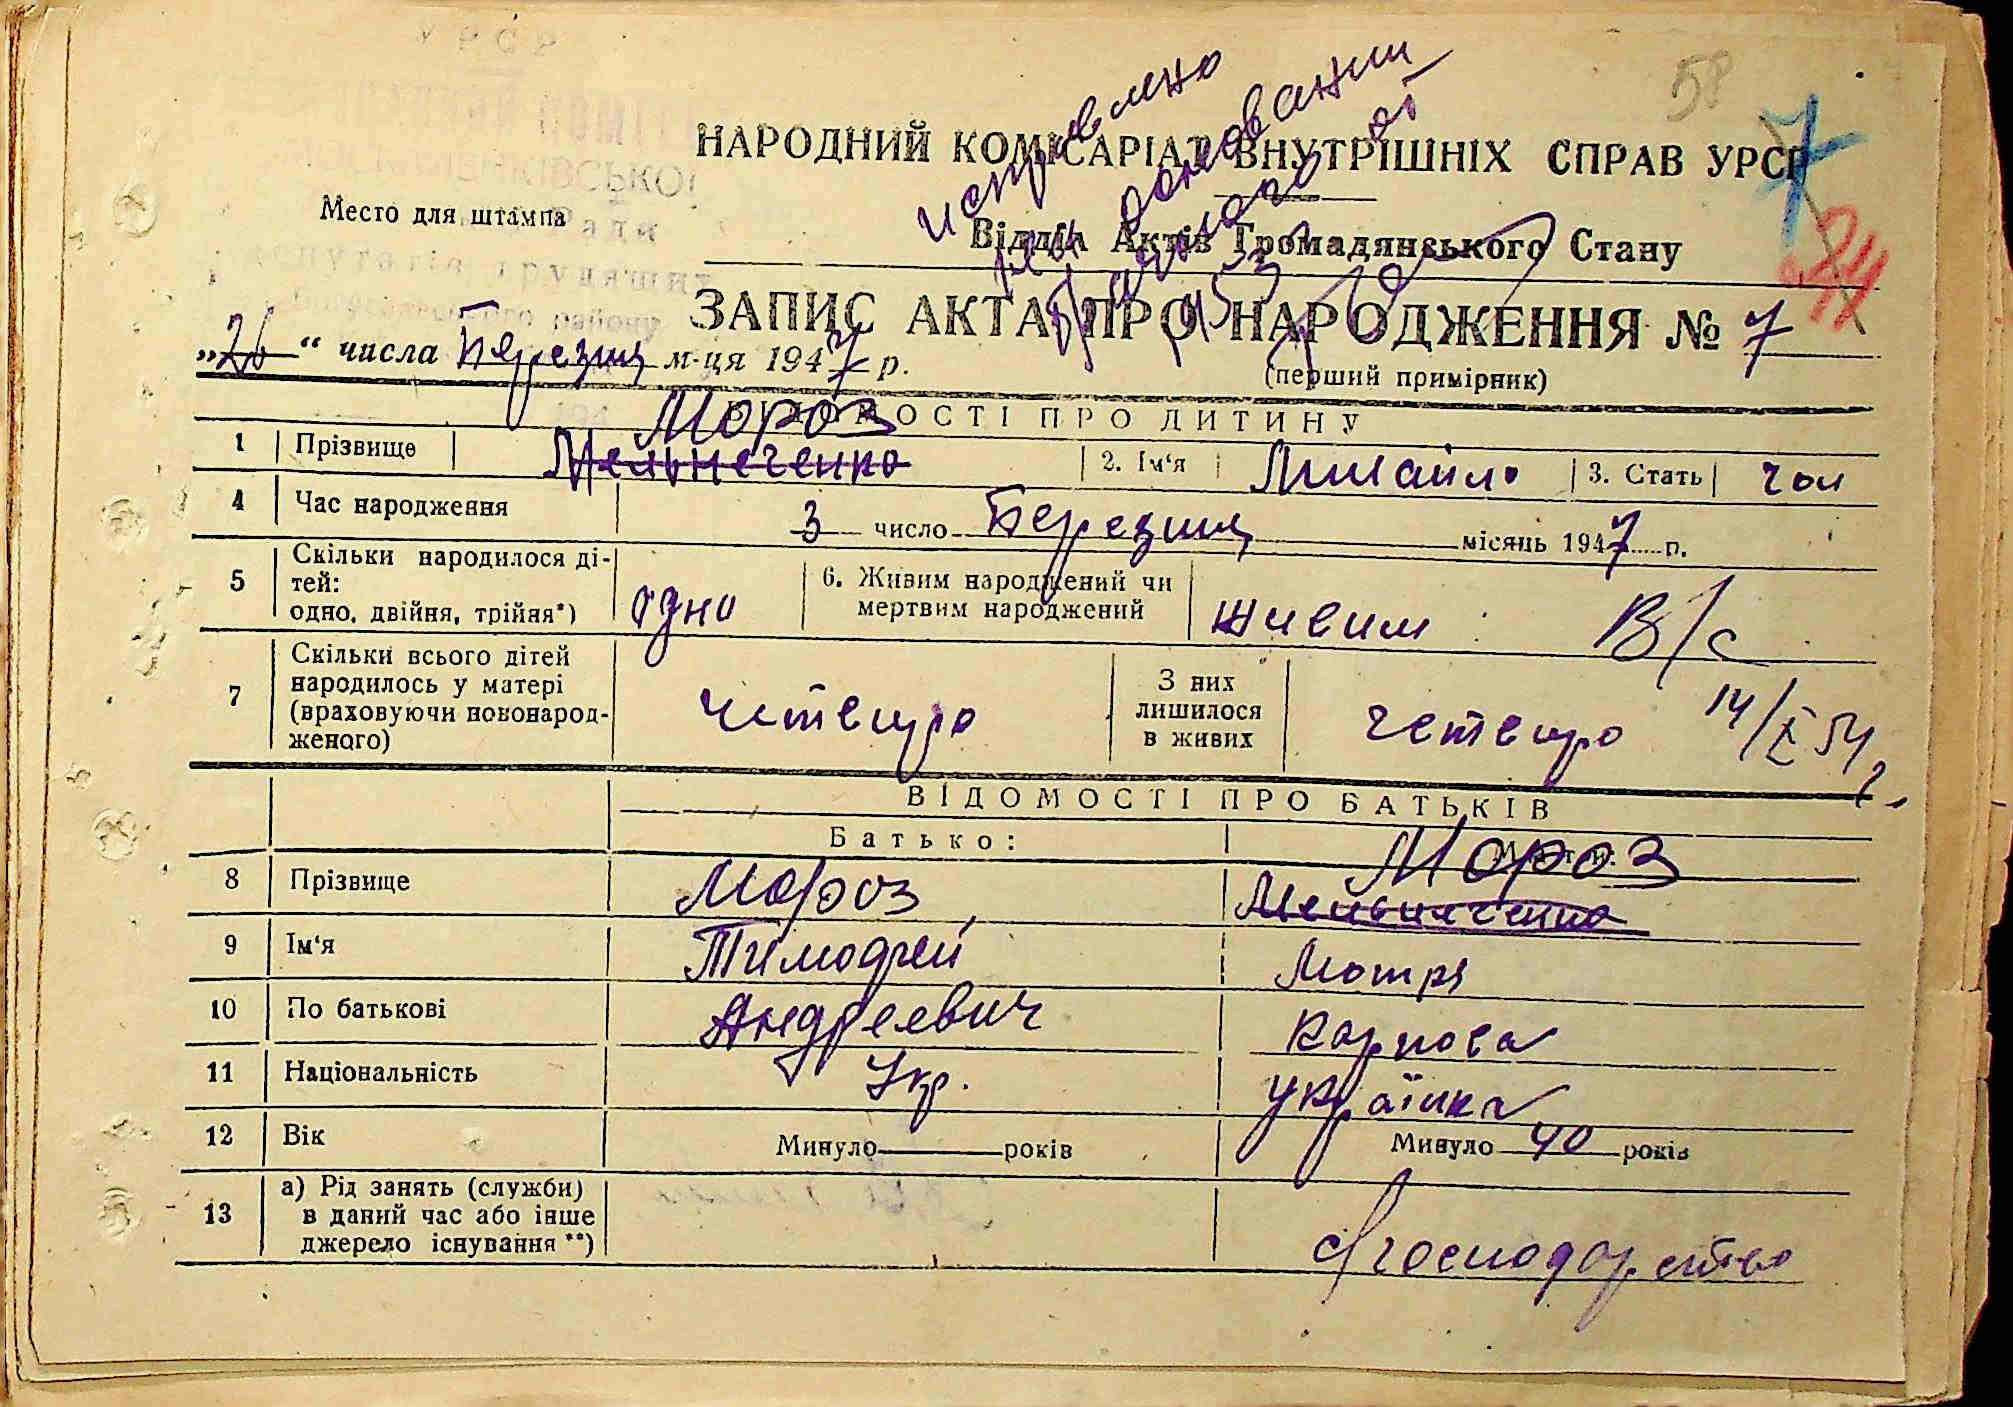 58
7
24
УРСР
Место для штампа
НАРОДНИЙ КОМІСАРІАТ ВНУТРІШНІХ СПРАВ УРСР
Відділ Актів Громадянського Стану
исправлено
на основании
ЗАПИС АКТА ПРО НАРОДЖЕННЯ № 7
„26“ числа Березня м-ця 1947 р.
(перший примірник)
ВІДОМОСТІ ПРО ДИТИНУ
Мороз
1 Прізвище Мельниченко 2. Ім‘я Михайло 3. Стать чол
4 Час народження 3 число Березня місяць 1947 р.
5 Скільки народилося ді-
тей:
одно, двійня, трійня*) одно 6. Живим народжений чи
мертвим народжений живим
В/с
7 Скільки всього дітей
народилось у матері
(враховуючи новонарод-
женого) четверо З них
лишилося
в живих четверо
14/X 54 г.
ВІДОМОСТІ ПРО БАТЬКІВ
Батько: Мати:
Мороз
8 Прізвище Мороз Мельниченко
9 Ім‘я Тимофей Мотря
10 По батькові Андреевич Карповa
11 Національність Укр. українка
12 Вік Минуло років Минуло 40 років
13 а) Рід занять (служби)
в даний час або інше
джерело існування **) с/господарство